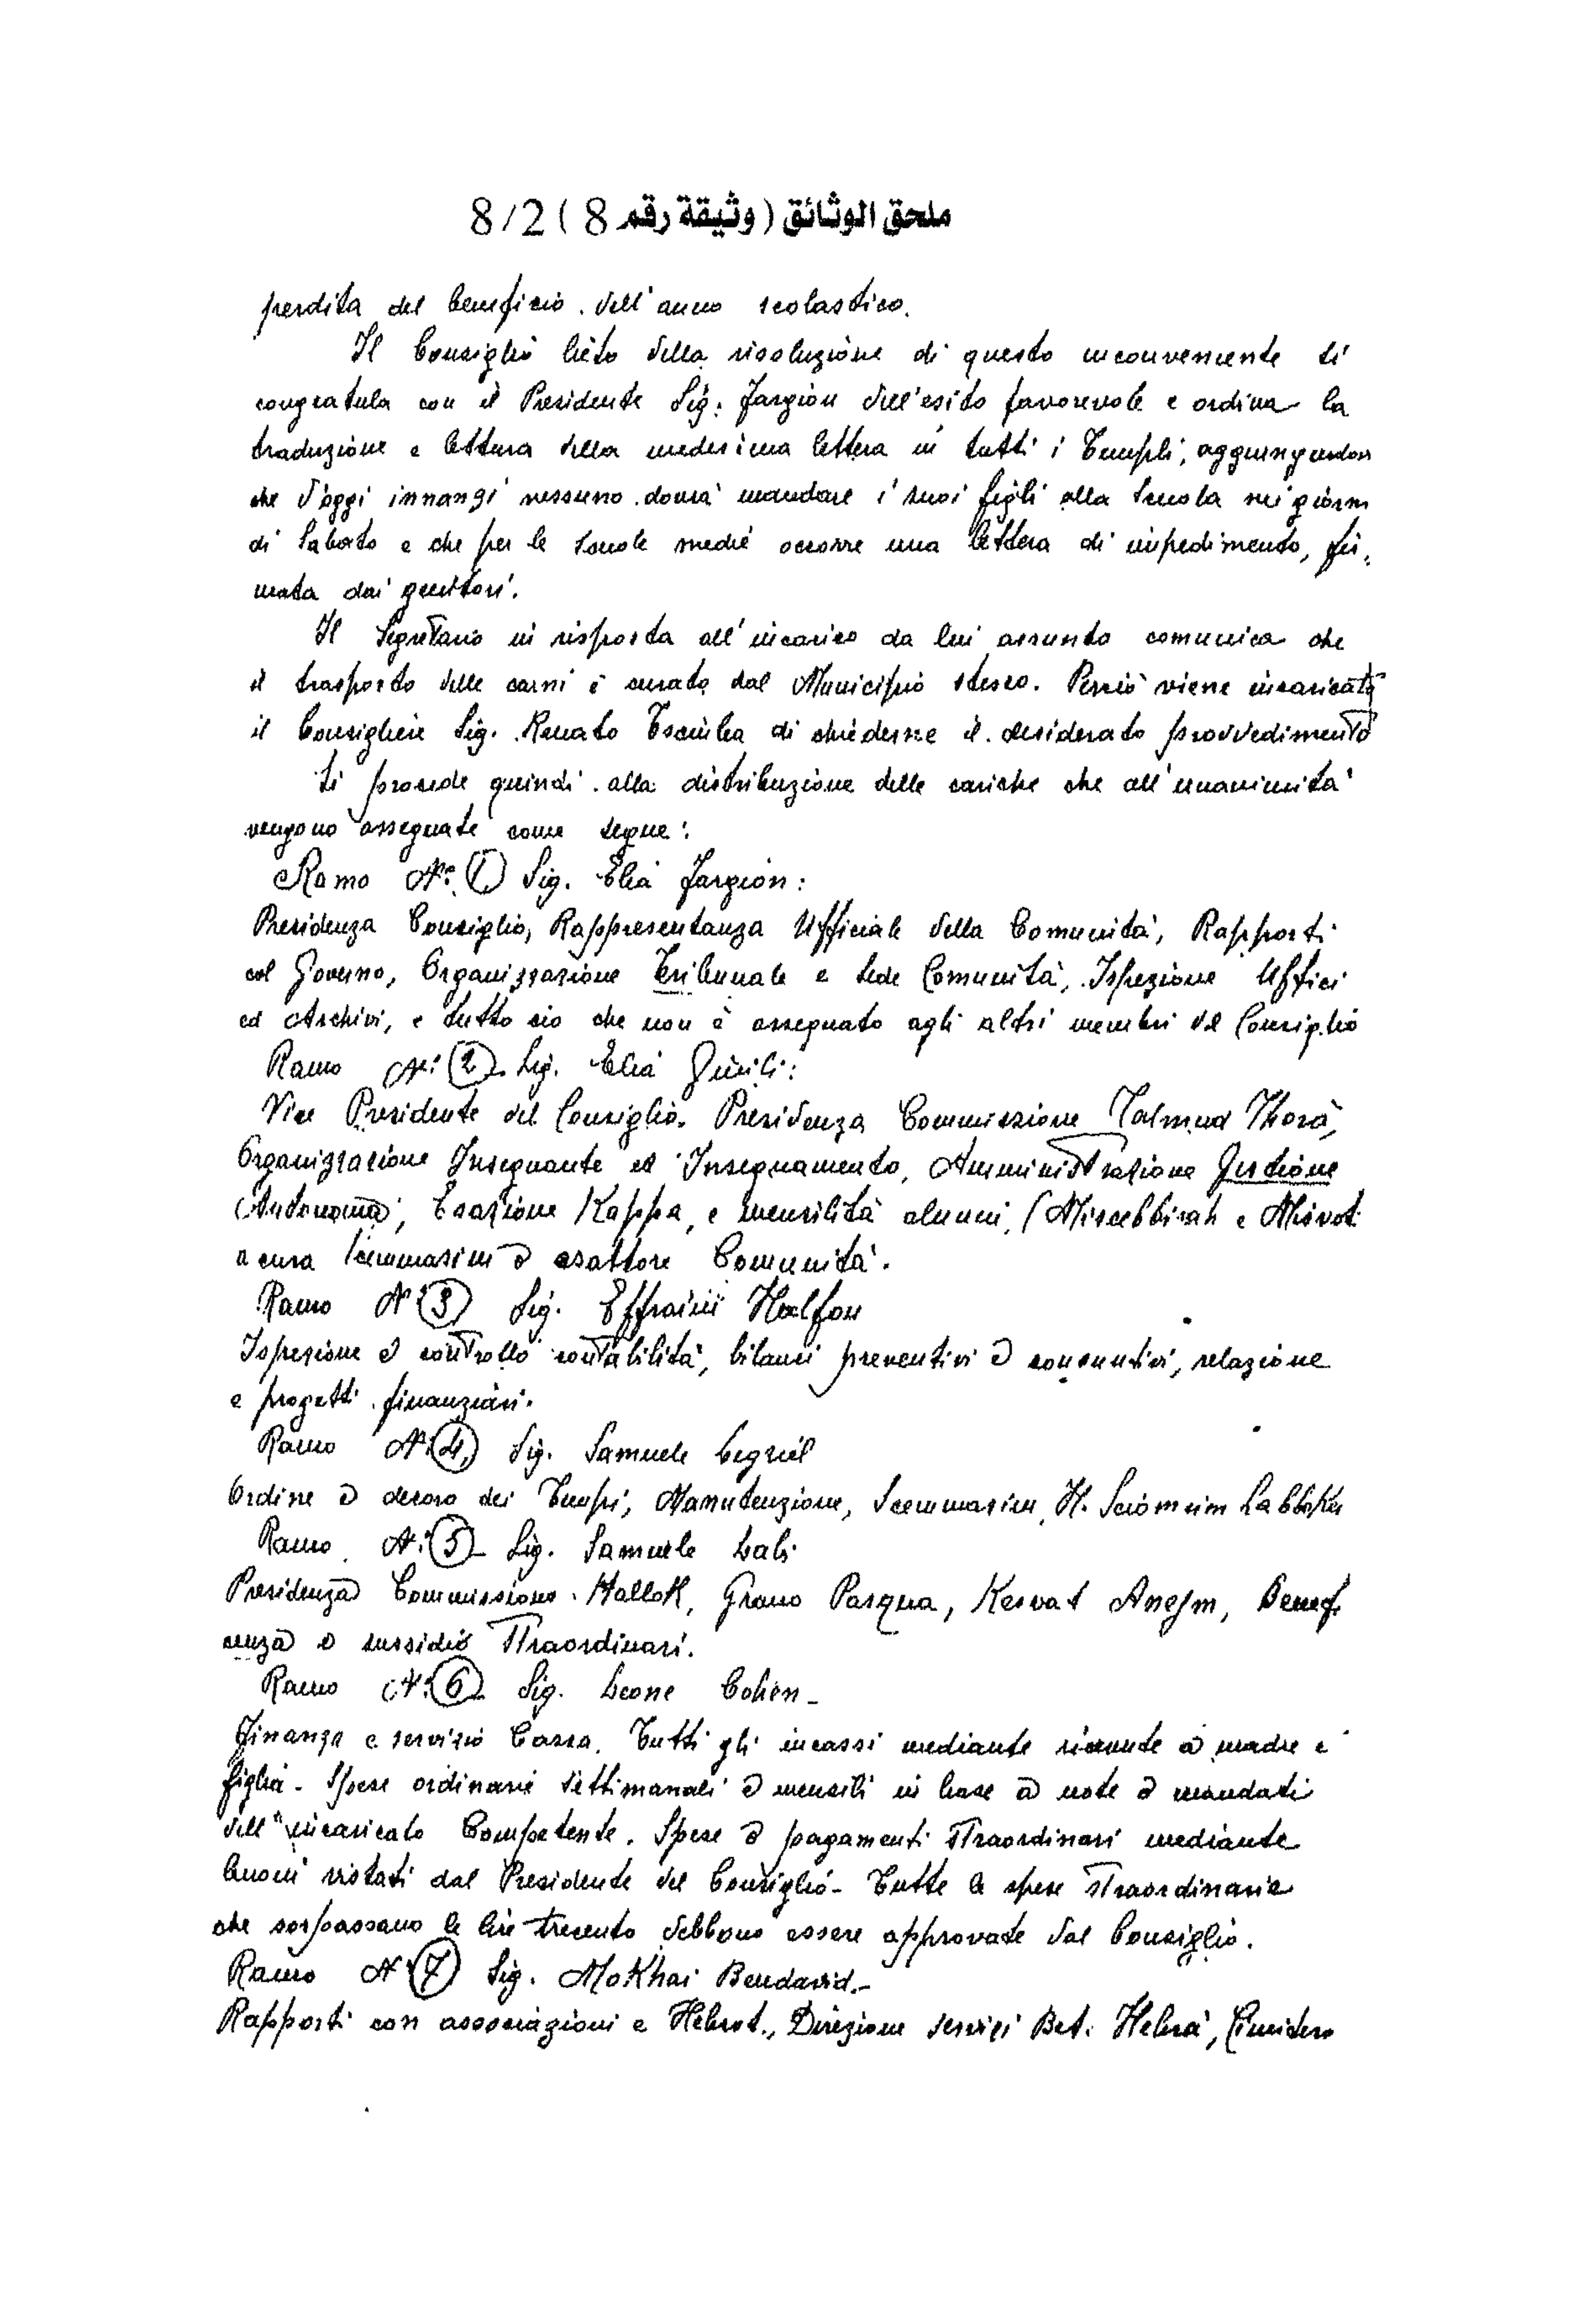 ملحق الوثائق ( وثيقة رقم 8 ) 8/2
perdita del beneficio dell'anno scolastico.
Il Consiglio lieto della risoluzione di questo inconveniente si
congratula con il Presidente Sig. Fargion dell'esito favorevole e ordina la
traduzione e lettura della medesima lettera in tutti i Templi, aggiungendovi
che d'oggi innanzi nessuno dovrà mandare i suoi figli alla Scuola nei giorni
di Sabato e che per le scuole medie occorre una lettera di impedimento, fir-
mata dai genitori.
Il Segretario in risposta all'incarico da lui assunto comunica che
il trasporto delle carni è curato dal Municipio stesso. Perciò viene incaricato
il Consigliere Sig. Renato Tsciuba di chiederne il desiderato provvedimento
Si procede quindi alla distribuzione delle cariche che all'unanimità
vengono assegnate come segue:
Ramo N.° 1 Sig. Elia Fargion:
Presidenza Consiglio, Rappresentanza Ufficiale della Comunità, Rapporti
col Governo, Organizzazione Tribunale e Sede Comunità, Ispezione Uffici
ed Archivi, e tutto ciò che non è assegnato agli altri membri del Consiglio
Ramo N.° 2 Sig. Elia
Vice Presidente del Consiglio. Presidenza Commissione Talmud Thorà,
Organizzazione Insegnante ed Insegnamento, Amministrazione Gestione
Autonoma, Esazione Kappa, e mensilità alunni, (Miscebbirah e Misvot
a cura Scemmascim e esattore Comunità.
Ramo N° 3 Sig. Effraim Halfon
Ispezione e controllo contabilità, bilanci preventivi e consuntivi, relazione
e progetti finanziari.
Ramo N. 4 Sig. Samuele Legziel
Ordine e decoro dei Tempi, Manutenzione, Scemmascim, H. Sciomrim Labboker
Ramo N. 5 Sig. Samuele Labi
Presidenza Commissione Hallok, Grano Pasqua, Kesvat Anejm, Benefi
cenza e sussidio straordinari.
Ramo N. 6 Sig. Leone Cohen-
Finanza e servizio Cassa. Tutti gli incassi mediante ricevute a madre e
figlia- Spese ordinarie settimanali e mensili in base a note e mandati
dell'incaricato Competente. Spese e pagamenti straordinari mediante
buoni vistati dal Presidente del Consiglio- Tutte le spese straordinarie
che sorpassano le lire trecento debbono essere approvate dal Consiglio.
Ramo N 7 Sig. Mokhai Bendavid.-
Rapporti con associazioni e Hebrot., Direzione servizi Bet. Hebrà,